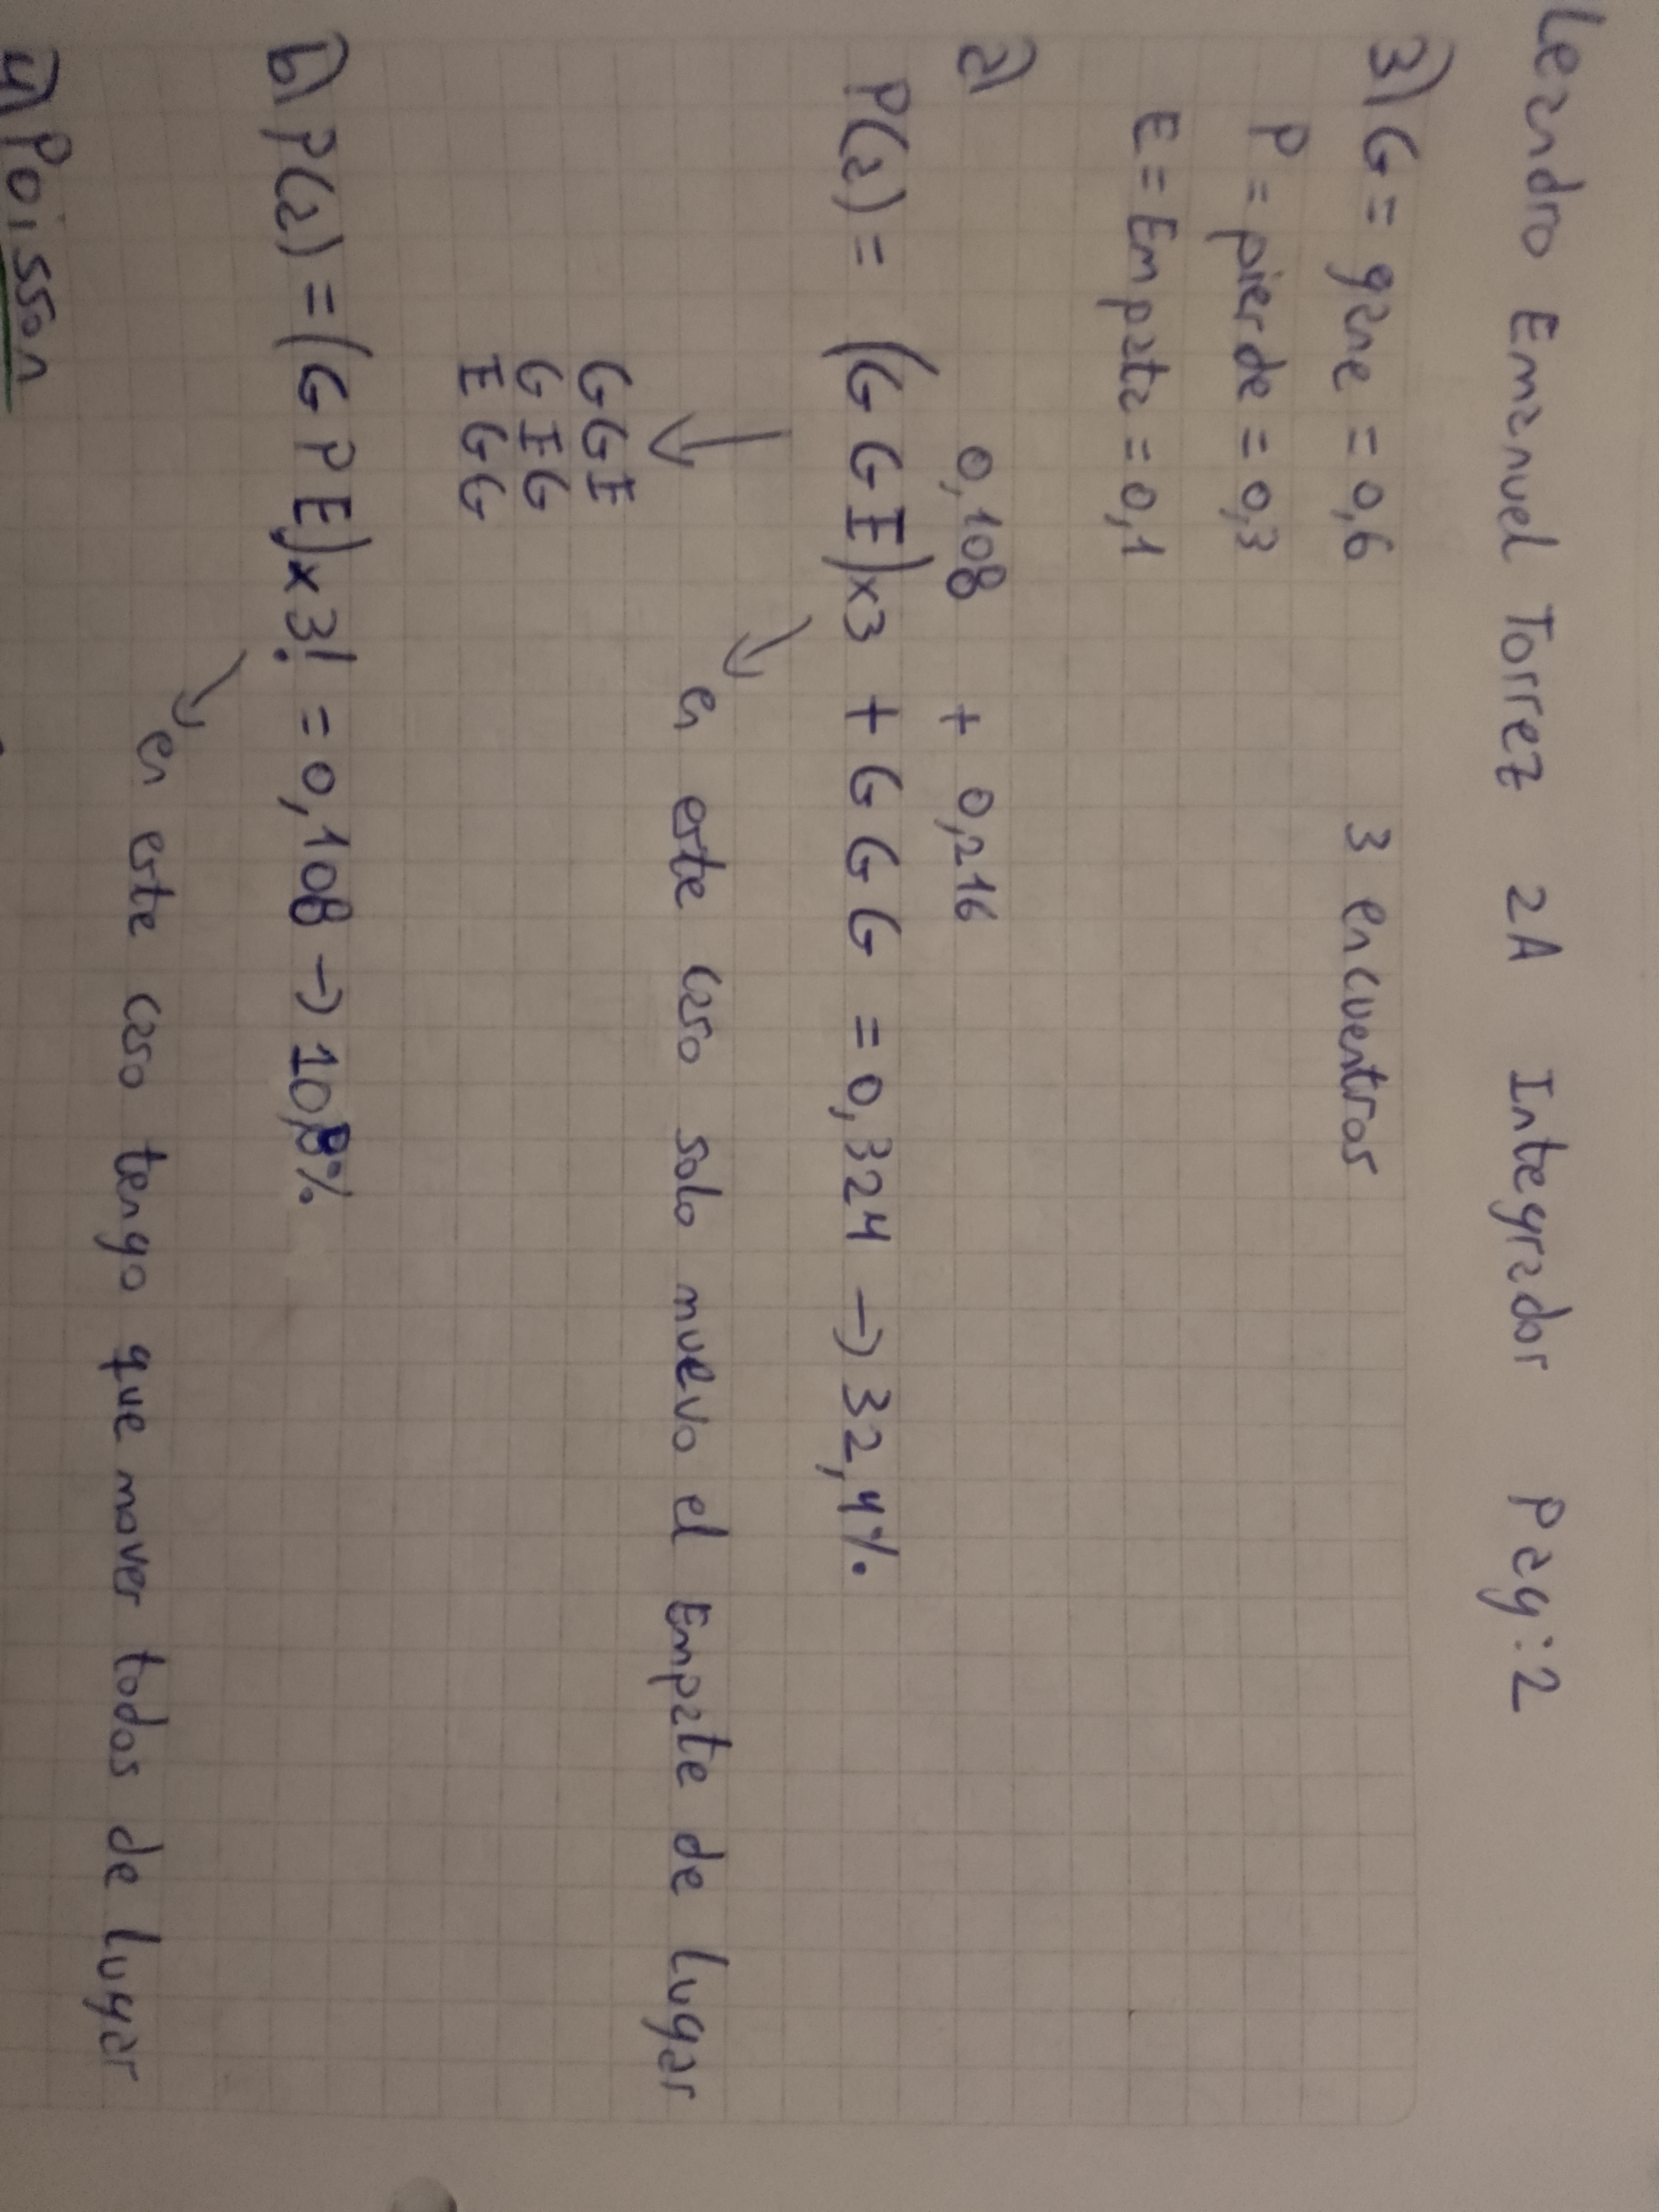 Leandro Emanuel Torrez 2A Integrador Pag:2
3) G = gane = 0,6 3 encuentros
P = pierde = 0,3
E = Empata = 0,1
a)
0,108 + 0,216
P(a) = (G G E)x3 + G G G = 0,324 → 32,4%
en este caso solo muevo el Empate de lugar
GGE
GEG
EGG
b) P(a) = (G P E)x3! = 0,108 → 10,8%
en este caso tengo que mover todos de lugar
4) Poisson